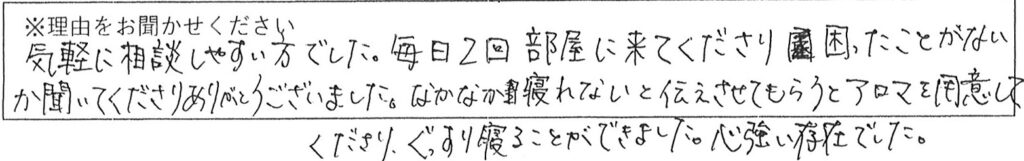 ※理由をお聞かせください
気軽に相談しやすい方でした。毎日2回部屋に来てくださり困ったことがない
か聞いてくださりありがとうございました。なかなか寝れないと伝えさせてもらうとアロマを用意して
くださり、ぐっすり寝ることができました。心強い存在でした。